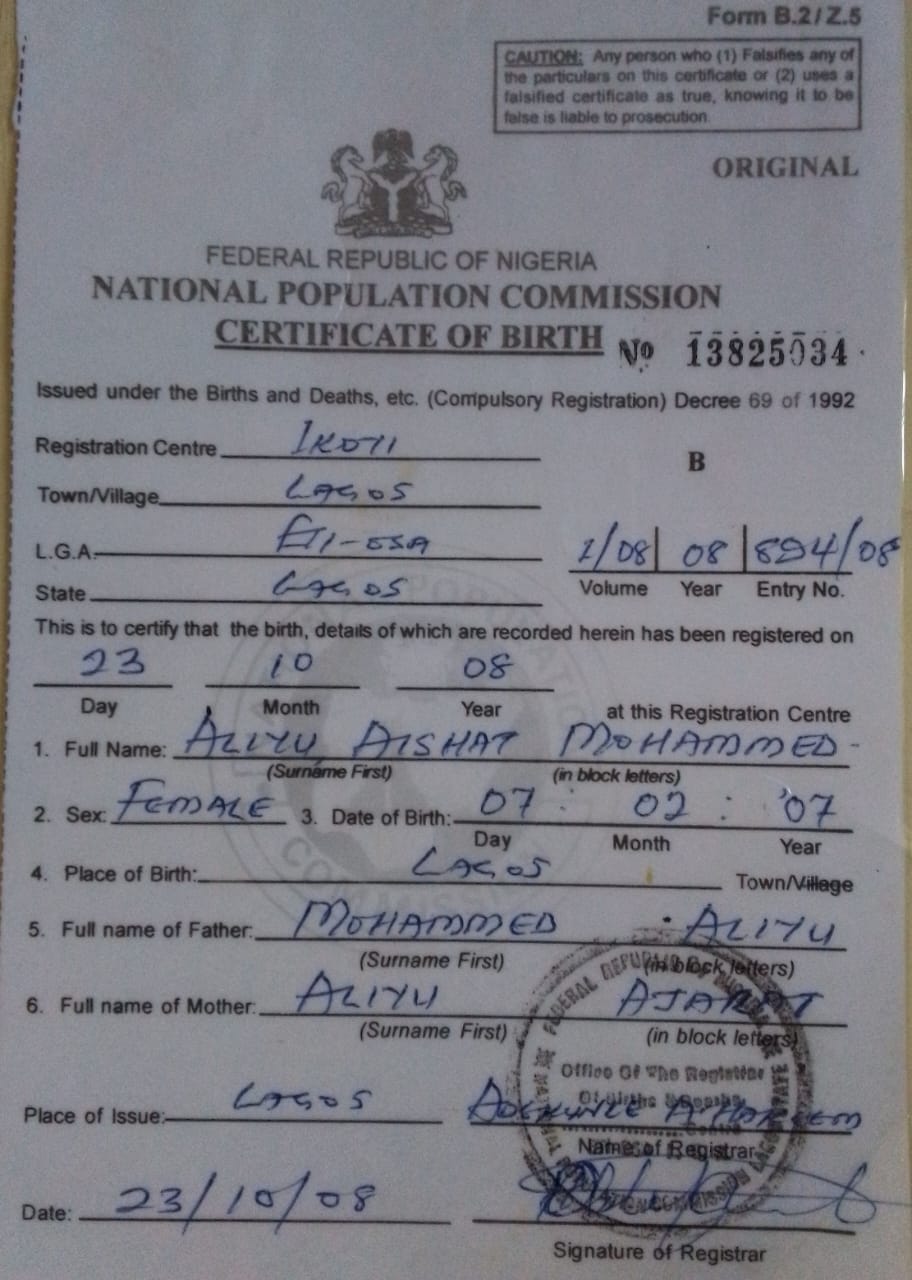 Form B.2/Z.5
CAUTION: Any person who (1) Falsifies any of
the particulars on this certificate or (2) uses a
falsified certificate as true, knowing it to be
false is liable to prosecution.
ORIGINAL
FEDERAL REPUBLIC OF NIGERIA
NATIONAL POPULATION COMMISSION
CERTIFICATE OF BIRTH
No 13825034
Issued under the Births and Deaths, etc. (Compulsory Registration) Decree 69 of 1992
Registration Centre IKOYI
B
Town/Village LAGOS
L.G.A. ETI-OSA
1/08 08 894/08
Volume Year Entry No.
State LAGOS
This is to certify that the birth, details of which are recorded herein has been registered on
23 10 08
Day Month Year at this Registration Centre
1. Full Name: ALIYU AISHAT MOHAMMED
(Surname First) (in block letters)
2. Sex: FEMALE 3. Date of Birth: 07 : 02 : '07
Day Month Year
4. Place of Birth: LAGOS Town/Village
5. Full name of Father: MOHAMMED ALIYU
(Surname First) (in block letters)
6. Full name of Mother: ALIYU AJARAT
(Surname First) (in block letters)
Office Of The Registrar
Of Births
Place of Issue: LAGOS
Name of Registrar
Date: 23/10/08
Signature of Registrar